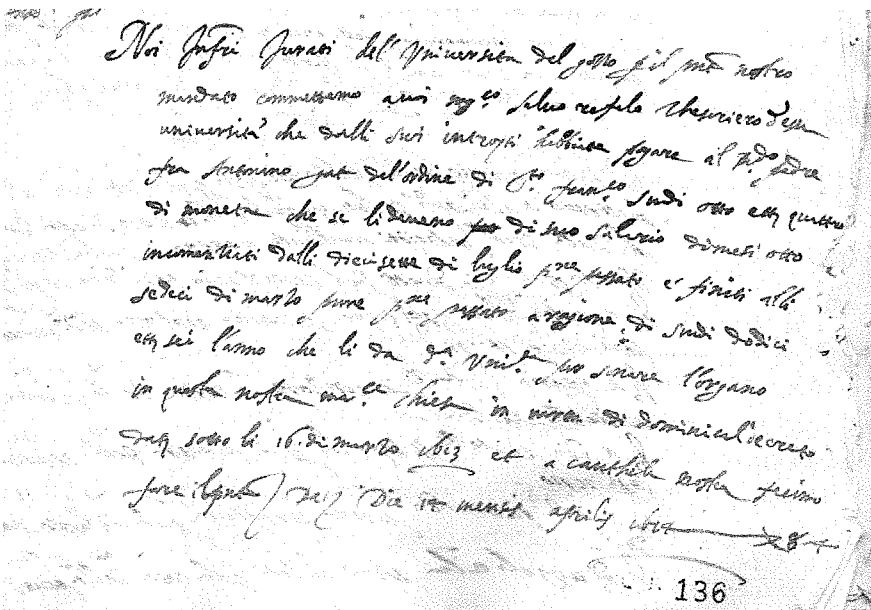 Noi Infri Jurati dell'Università del gozo p il pnte nostro
mandato committemo a voi mag.co Salvo refalo thesoriero d'essa
università che dalli suoi introyti debbiate pagare al R.do padre
fra Antonino dell'ordine di S.to fran.co scudi otto et quattro
di moneta che se li deveno di suo salario di mesi otto
incomentiati dalli diecisette di luglio pne passato e finiti alli
sedeci di marzo pure pne passato a ragione di scudi dodici
et sei l'anno che li da d.a Uni.ta per sonare l'organo
in questa nostra ma.ce chiesa in decreto
sotto li 16. di marzo 1613 et a cauthela nostra
fare il pnte Die 17 mensis aprilis 1614
136